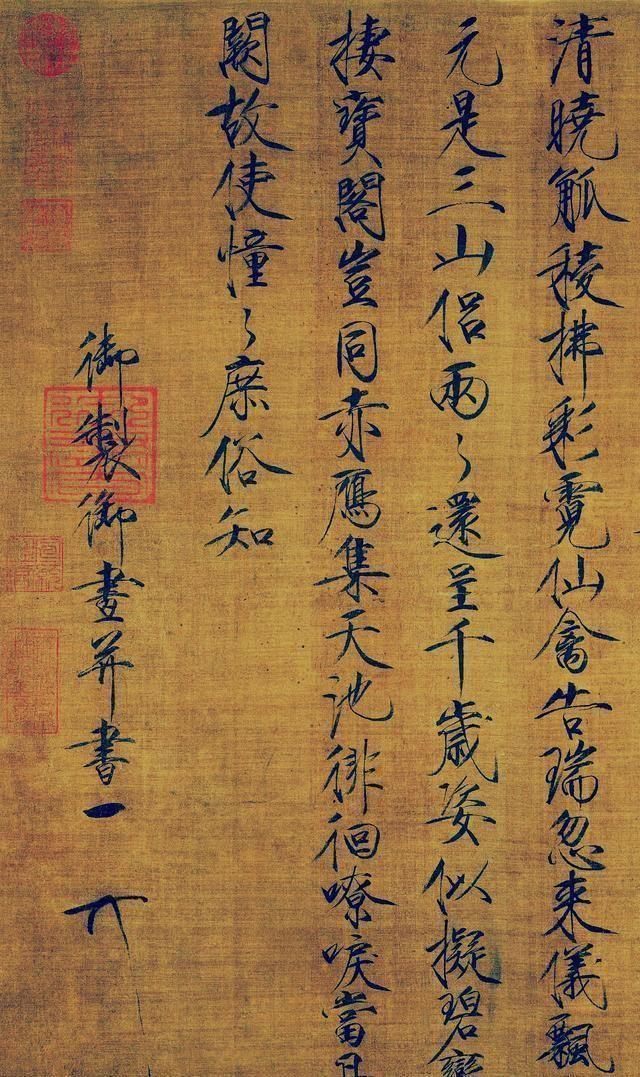 清曉觚稜拂彩霓仙禽告瑞忽來儀飄
元是三山侶兩〻還呈千歲姿似擬碧鸞
棲寶閣豈同赤鴈集天池徘徊嘹唳當丹
闕故使憧〻庶俗知
御製御畫并書